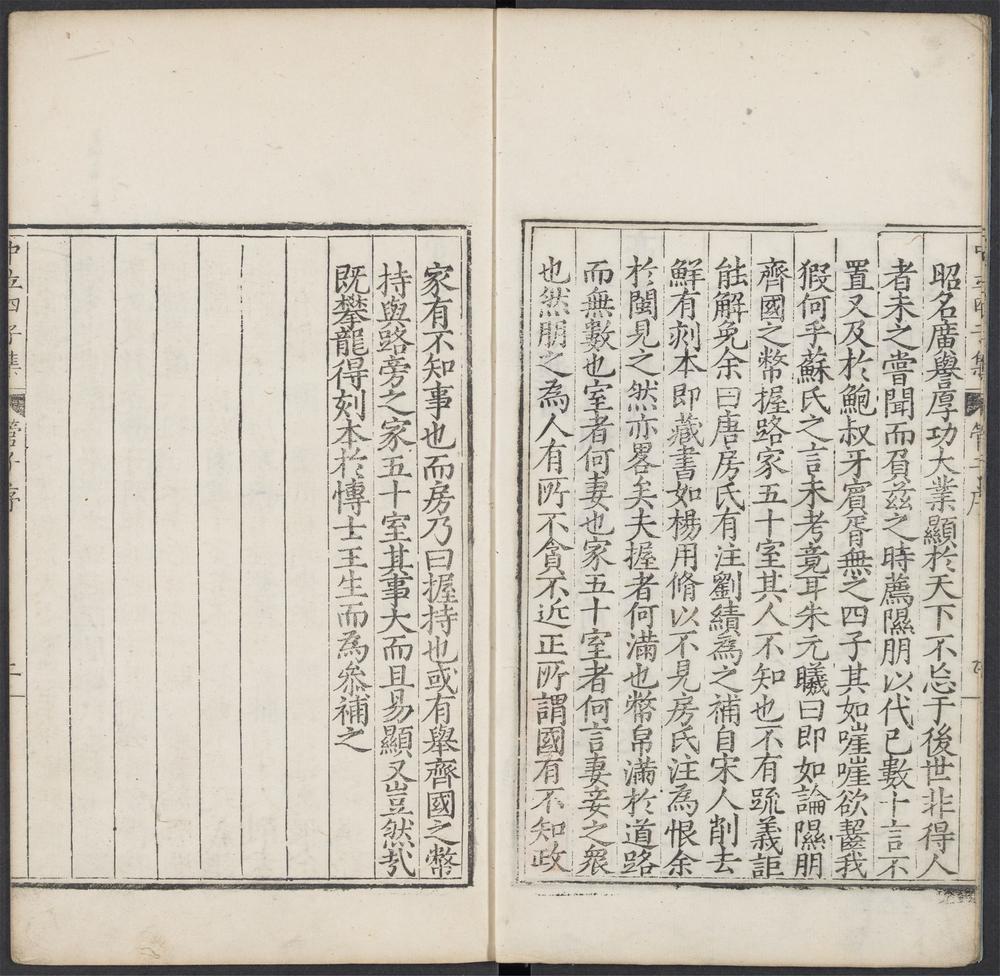 昭名廣譽厚功大業顯於天下不忘于後世非得人
者未之嘗聞而頁茲之時薦隰朋以代已數十言不
置又及於鮑叔牙賓胥無之四子其如嘊嘊欲齧我
猳何乎蘇氏之言未考竟耳朱元曦曰即如論隰朋
齊國之幣握路家五十室其人不知也不有疏義詎
能解免余曰唐房氏有注劉績爲之補自宋人削去
鮮有刻本即藏書如楊用脩以不見房氏注為恨余
於閩見之然亦畧矣夫握者何滿也幣帛滿於道路
而無數也室者何妻也家五十室者何言妻妾之衆
也然朋之為人有所不貪不近正所謂國有不知政
家有不知事也而房乃曰握持也或有舉齊國之幣
持與路旁之家五十室其事大而且易顯又豈然㢤
既攀龍得刻本於博士王生而為叅補之
中立四子集
管子序
二